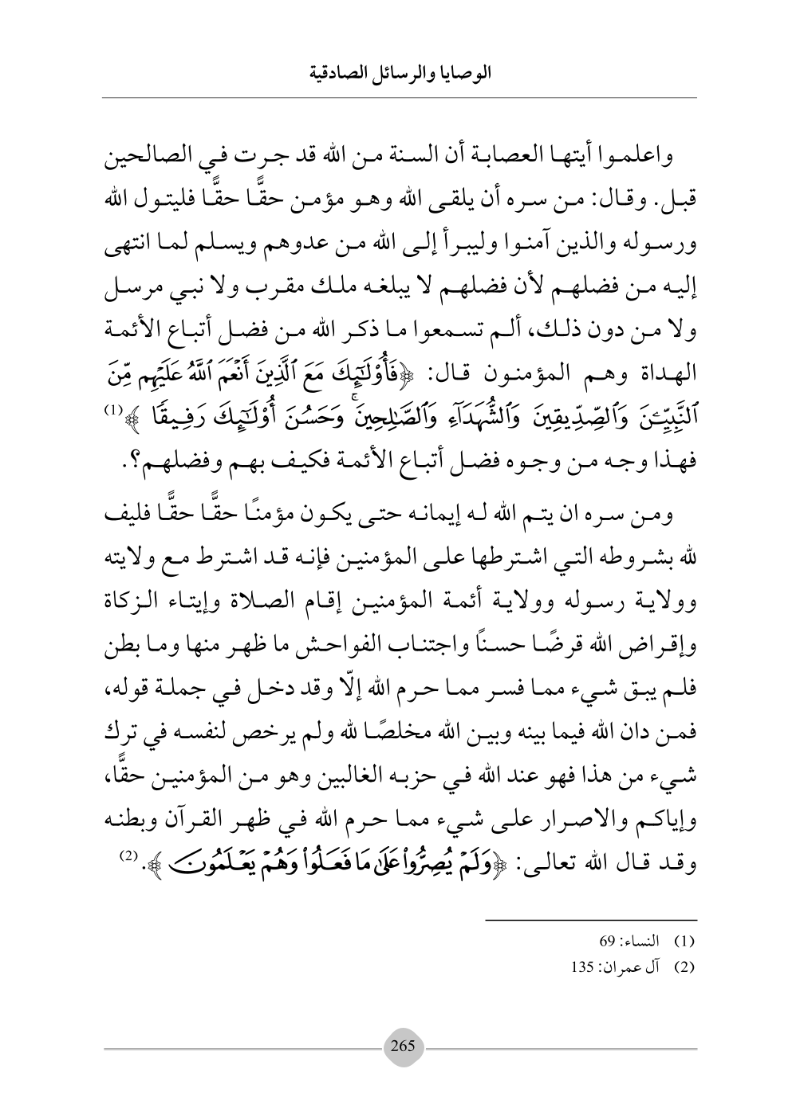 الوصايا والرسائل الصادقية
واعلمـوا أيتهـا العصابـة أن السـنة مـن الله قد جـرت فـي الصالحين
قبـل. وقـال: مـن سـره أن يلقـى الله وهـو مؤمـن حقًّـا حقًّـا فليتـول الله
ورسـوله والذين آمنـوا وليبـرأ إلـى الله مـن عدوهم ويسـلم لمـا انتهى
إليـه مـن فضلهـم لأن فضلهـم لا يبلغـه ملـك مقـرب ولا نبـي مرسـل
ولا مـن دون ذلـك، ألـم تسـمعوا مـا ذكـر الله مـن فضـل أتبـاع الأئمـة
الهـداة وهـم المؤمنـون قـال: ﴿فَأُوْلَٰٓئِكَ مَعَ ٱلَّذِينَ أَنۡعَمَ ٱللَّهُ عَلَيۡهِم مِّنَ
ٱلنَّبِيِّـۧنَ وَٱلصِّدِّيقِينَ وَٱلشُّهَدَآءِ وَٱلصَّٰلِحِينَۚ وَحَسُنَ أُوْلَٰٓئِكَ رَفِيقٗا﴾(1)
فهـذا وجـه مـن وجـوه فضـل أتبـاع الأئمـة فكيـف بهـم وفضلهـم؟.
ومـن سـره ان يتـم الله لـه إيمانـه حتـى يكـون مؤمنًـا حقًّـا حقًّـا فليف
لله بشـروطه التـي اشـترطها علـى المؤمنيـن فإنـه قـد اشـترط مـع ولايته
وولايـة رسـوله وولايـة أئمـة المؤمنيـن إقـام الصـلاة وإيتـاء الـزكاة
وإقـراض الله قرضًـا حسـنًا واجتنـاب الفواحـش ما ظهـر منها ومـا بطن
فلـم يبـق شـيء ممـا فسـر ممـا حـرم الله إلّا وقد دخـل فـي جملـة قوله،
فمـن دان الله فيما بينه وبيـن الله مخلصًـا لله ولم يرخص لنفسـه في ترك
شـيء من هذا فهو عند الله فـي حزبـه الغالبين وهو مـن المؤمنيـن حقًّا،
وإياكـم والاصـرار علـى شـيء ممـا حـرم الله فـي ظهـر القـرآن وبطنـه
وقـد قـال الله تعالـى: ﴿وَلَمۡ يُصِرُّواْ عَلَىٰ مَا فَعَلُواْ وَهُمۡ يَعۡلَمُونَ﴾.(2)
(1) النساء: 69
(2) آل عمران: 135
265